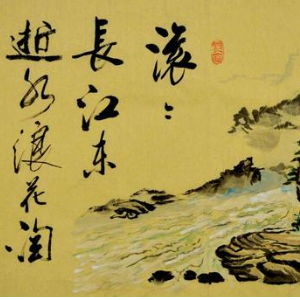 滚〻
長江东
逝水浪花淘